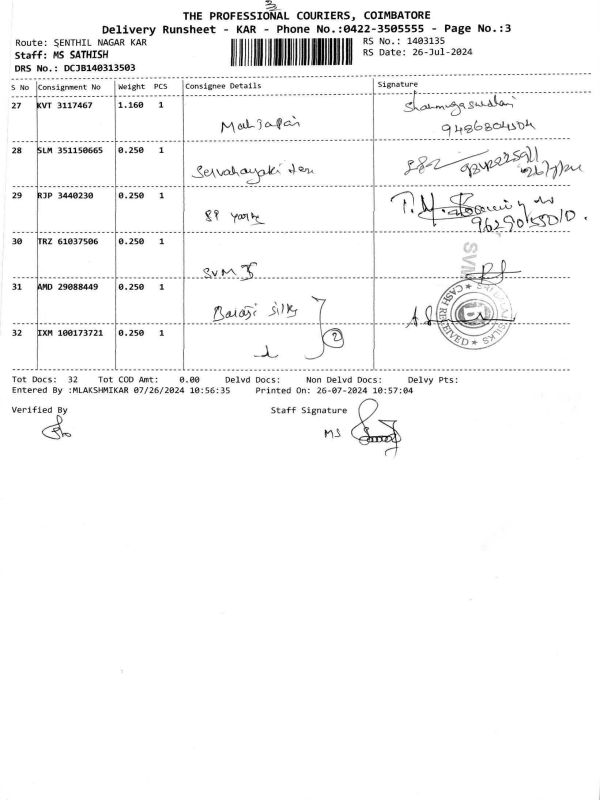 3
THE PROFESSIONAL COURIERS, COIMBATORE
Delivery Runsheet - KAR - Phone No.:0422-3505555 - Page No.:3
Route: SENTHIL NAGAR KAR
RS No.: 1403135
Staff: MS SATHISH
RS Date: 26-Jul-2024
DRS No.: DCJB140313503
S No Consignment No Weight PCS Consignee Details Signature
27 KVT 3117467 1.160 1
9486804504
28 SLM 351150665 0.250 1
29 RJP 3440230 0.250 1
SP Yarns
962901550
30 TRZ 61037506 0.250 1
SVM
SVM
31 AMD 29088449 0.250 1
Balaji silks
CASH RECEIVED
SILKS
32 IXM 100173721 0.250 1
2
Tot Docs: 32 Tot COD Amt: 0.00 Delvd Docs: Non Delvd Docs: Delvy Pts:
Entered By :MLAKSHMIKAR 07/26/2024 10:56:35 Printed On: 26-07-2024 10:57:04
Verified By
Staff Signature
MS